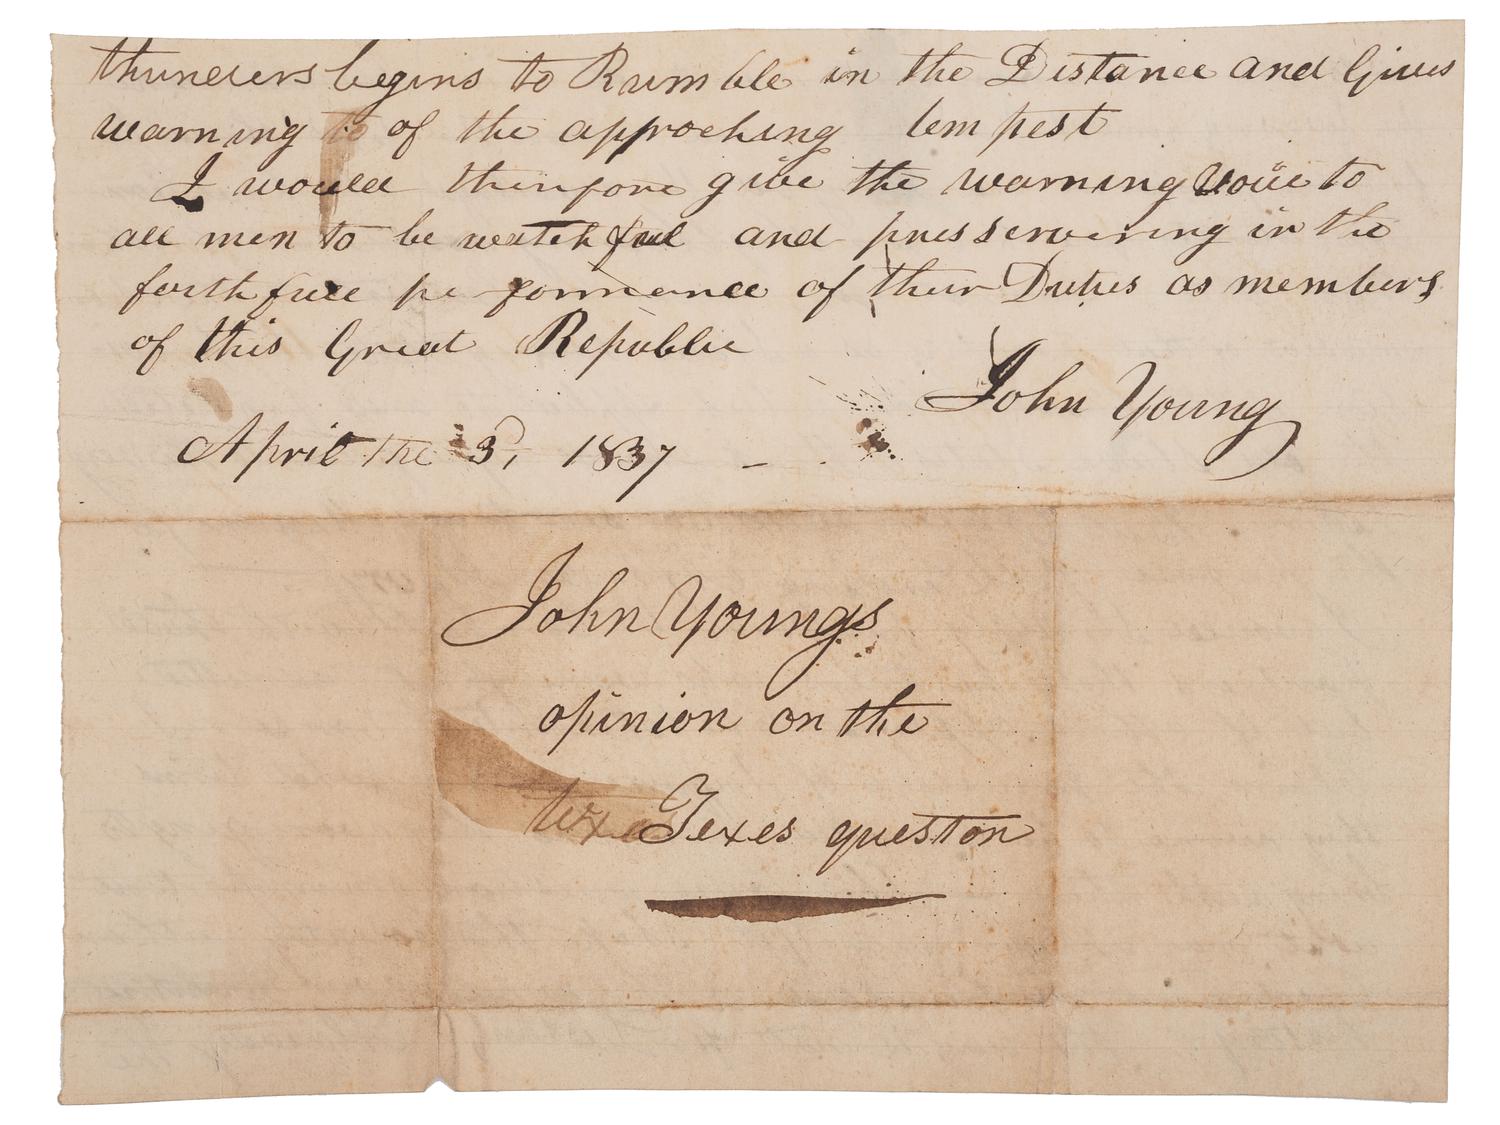 thunders begins to Rumble in the Distance and Gives
warning to of the approching tempest
I would therefore give the warning Voice to
all men to be watchful and presservering in the
forthfull performance of their Duties as members
of this Great Republic
John Young
April the 3, 1837
John Youngs
opinion on the
texa Texes queston